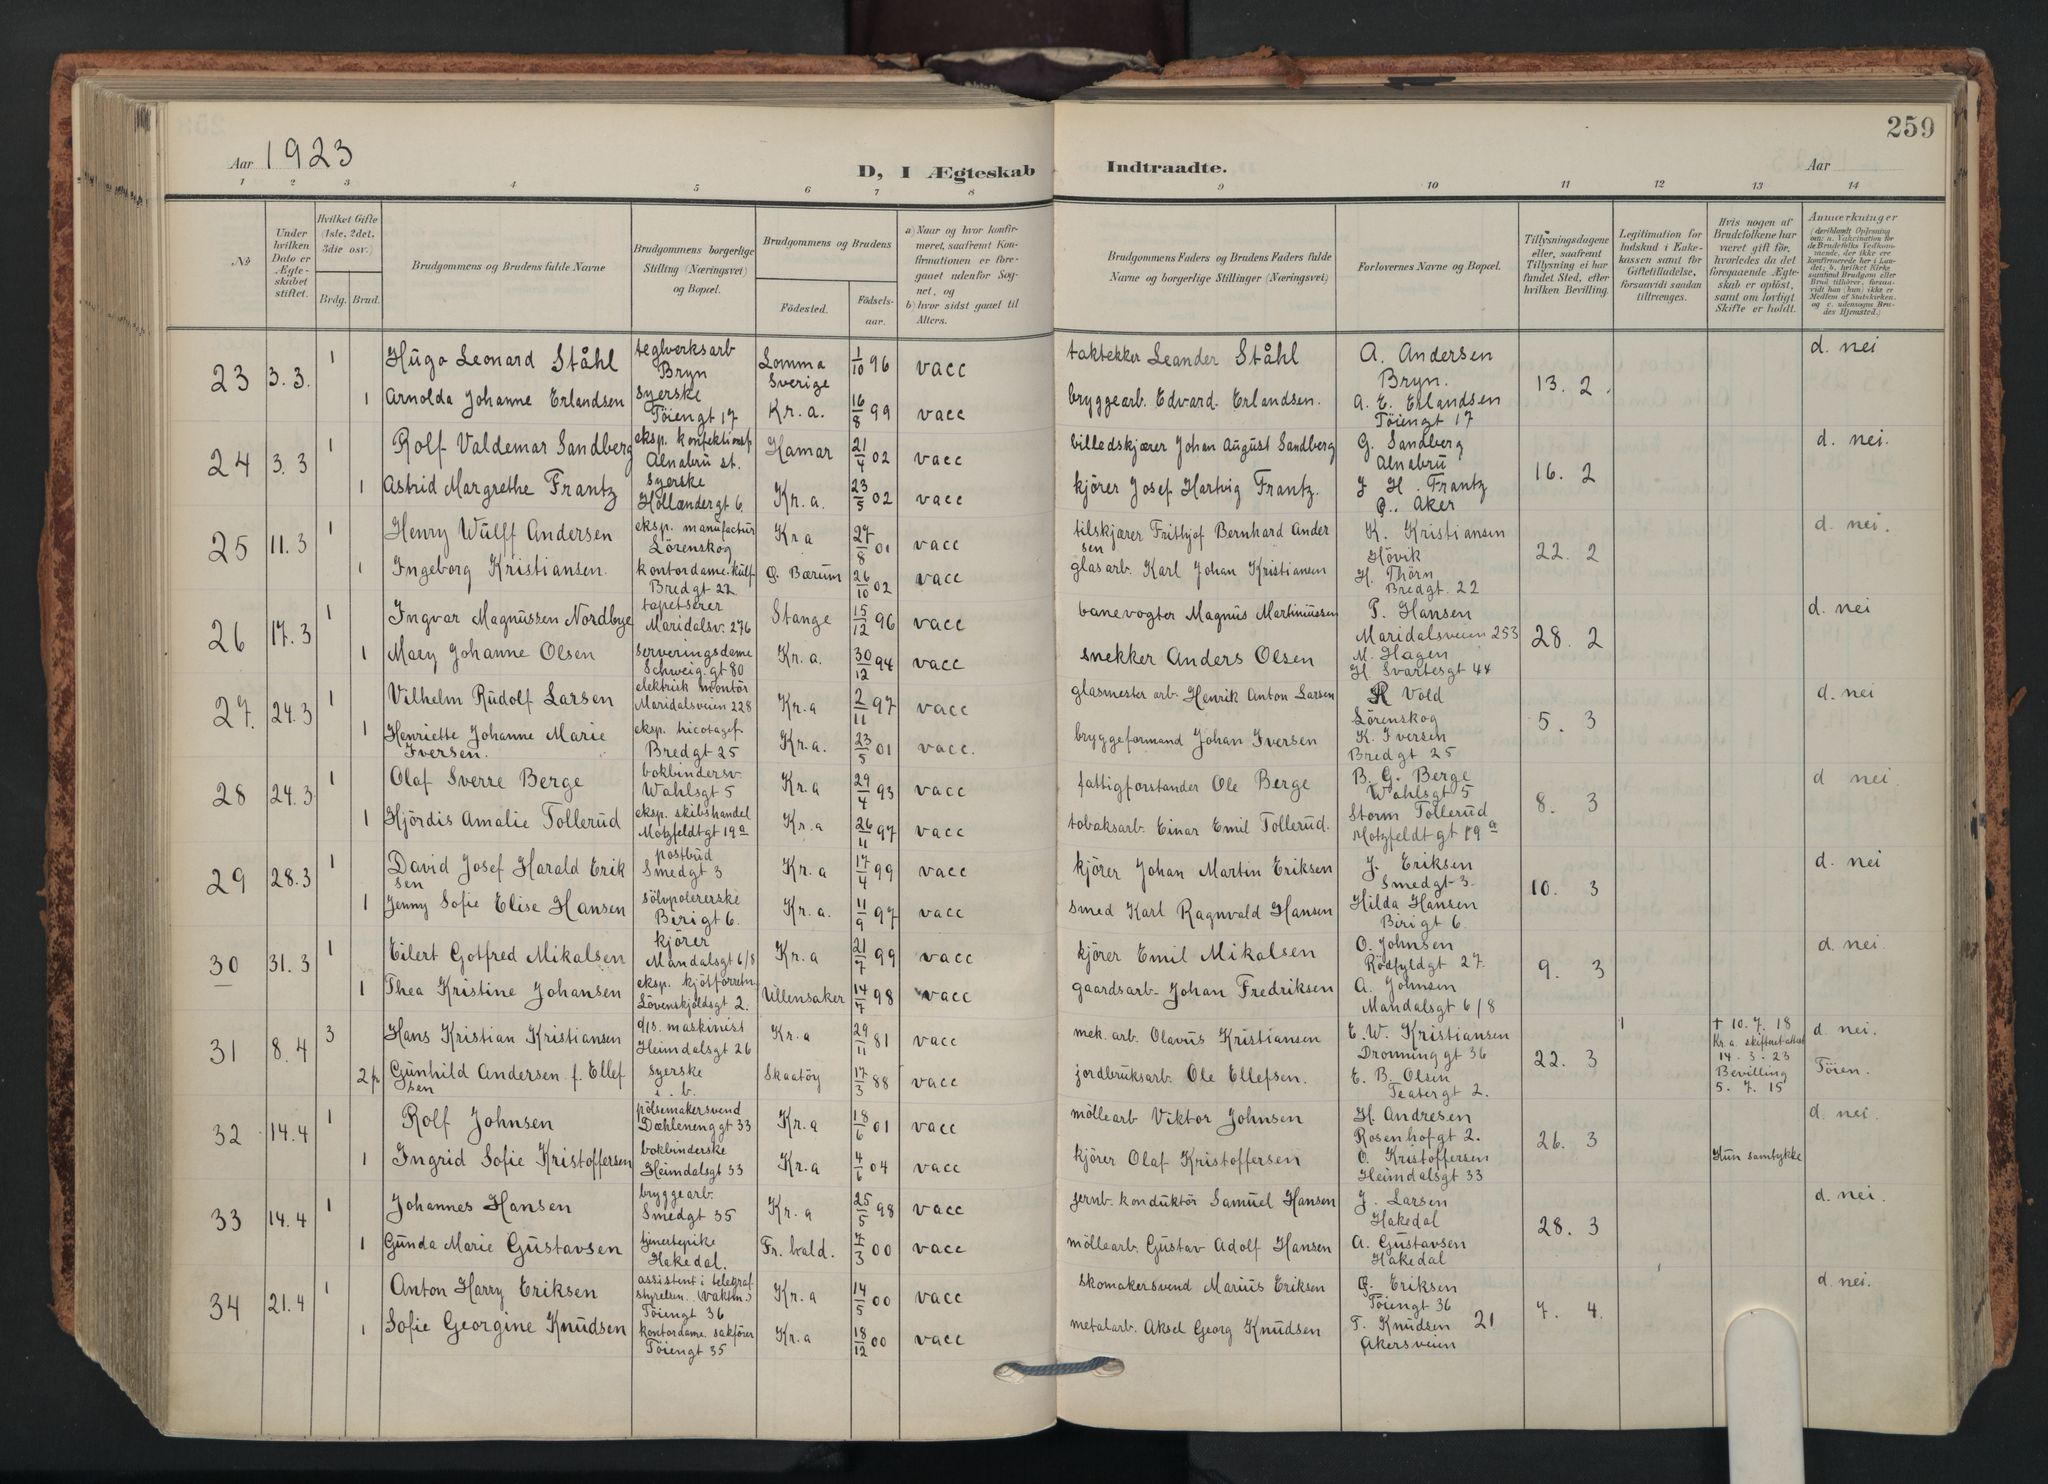 259
Aar 1923
D, I Ægteskab Indtraadte.
Aar
1 2 3 4 5 6 7 8 9 10 11 12 13 14
No
Under hvilken Dato er Ægteskabet stiftet.
Hvilket Gifte (1ste, 2det, 3die osv.)
Brdg. Brud.
Brudgommens og Brudens fulde Navne
Brudgommens borgerlige Stilling (Næringsvei) og Bopæl.
Brudgommens og Brudens
Fødested. Fødselsaar.
a) Naar og hvor konfirmeret, saafremt Konfirmationen er foregaaet udenfor Sognet, og
b) hvor sidst gaaet til Alters.
Brudgommens Faders og Brudens Faders fulde Navne og borgerlige Stillinger (Næringsvei)
Forlovernes Navne og Bopæl.
Tillysningsdagene eller, saafremt Tillysning ei har fundet Sted, efter hvilken Bevilling.
Legitimation for Indskud i Enkekassen samt for Giftetilladelse, forsaavidt saadan tiltrænges.
Hvis nogen af Brudefolkene har været gift før, hvorledes da det foregaaende Ægteskab er opløst, samt om lovligt Skifte er holdt.
Anmærkninger
(deriblandt Oplysning om: a. Vakcination for de Brudefolks Vedkommende, der ikke ere konfirmerede her i Landet; b. hvilket Kirkesamfund Brudgom eller Brud tilhører, forsaavidt han (hun) ikke er Medlem af Statskirken, og c. udensogns Brudes Hjemsted.)
23 3. 3. 1 Hugo Leonard Ståhl teglverksarb Bryn Lomma Sverige 1/10 96 vacc taktekker Leander Ståhl A. Andersen Bryn. 13. 2 d. nei
1 Arnolda Johanne Erlandsen syerske Töiengt 17 Kr.a. 16/8 99 vacc bryggearb. Edvard Erlandsen. A. E. Erlandsen Töiengt 17
24 3. 3 1 Rolf Valdemar Sandberg eksp. konfektionsf Alnabru st. Hamar 21/4 02 vacc billedskjærer Johan August Sandberg G. Sandberg Alnabru 16. 2 d. nei.
1 Astrid Margrethe Frantz syerske Hollændergt 6. Kr.a. 23/5 02 vacc kjörer Josef Hartvig Frantz. J. H. Frantz Ö. Aker
25 11. 3 1 Henry Wulff Andersen eksp. manufactur Lörenskog Kr a 27/8 01 vacc tilskjærer Frithjof Bernhard Andersen K. Kristiansen Hövik 22. 2 d. nei.
1 Ingeborg Kristiansen. kontordame kulf Bredgt 22 Ö. Bærum 26/10 02 vacc glasarb. Karl Johan Kristiansen H. Thörn Bredgt. 22
26 17. 3 1 Ingvar Magnussen Nordbye tapetserer Maridalsv. 276 Stange 15/12 96 vacc banevogter Magnus Martinussen P. Hansen Maridalsveien 253 28. 2 d. nei
1 Mary Johanne Olsen serveringsdame Schweig. gt 80 Kr.a. 30/12 94 vacc snekker Anders Olsen M. Hagen H. Svartesgt 44
27. 24. 3 1 Vilhelm Rudolf Larsen elektrisk montör Maridalsveien 228 Kr.a 2/11 97 vacc glasmester arb. Henrik Anton Larsen R Vold Lörenskog 5. 3 d. nei
1 Henriette Johanne Marie Iversen. eksp. tricotagef Bredgt 25 Kr.a. 23/5 01 vacc. bryggeformand Johan Iversen K. Iversen Bredgt 25
28 24. 3 1 Olaf Sverre Berge bokbindersv. Wahlsgt 5 Kr.a 29/4 93 vacc fattigforstander Ole Berge B. G. Berge Wahlsgt 5 8. 3 d nei
1 Hjördis Amalie Tollerud eksp. skibshandel Motzfeldtgt 19a Kr.a 26/11 97 vacc tobaksarb. Einar Emil Tollerud. Storm Tollerud Motzfeldt gt 19a
29 28. 3 1 David Josef Harald Eriksen postbud Smedgt 3 Kr.a 17/4 99 vacc kjörer Johan Martin Eriksen J. Eriksen Smedgt 3. 10. 3 d. nei
1 Jenny Sofie Elise Hansen sölvpolererske Birigt 6. Kr.a. 11/9 97 vacc smed Karl Ragnvald Hansen Hilda Hansen Birigt 6.
30 31. 3 1 Eilert Gotfred Mikalsen kjörer Mandalsgt 6/8 Kr.a 21/7 99 vacc kjörer Emil Mikalsen O. Johnsen Rödfyldgt 27. 9. 3 d. nei.
1 Thea Kristine Johansen eksp. kjötforretn. Lövenskjoldsgt 2. Ullensaker 14/7 98 vacc gaardsarb. Johan Fredriksen A. Johnsen Mandalsgt 6/8
31 8. 4 3 Hans Kristian Kristiansen d/s. maskinist Heimdalsgt 26 Kr.a 29/11 81 vacc mek. arb. Olavus Kristiansen E. W. Kristiansen Dronninggt 36 22. 3 1 † 10. 7. 18 Kr.a. skifteretattest 14. 3. 23 d. nei.
2 Gunhild Andersen f. Ellefsen syerske i. b. Skaatöy 17/3 88 vacc jordbruksarb. Ole Ellefsen. E. B. Olsen Teatergt 2. Bevilling 5. 7. 15 Töien.
32 14. 4 1 Rolf Johnsen pölsemakersvend Dæhlenenggt 33 Kr.a 18/6 01 vacc möllearb Viktor Johnsen H. Andresen Rosenhofgt 2. 26. 3 d. nei.
1 Ingrid Sofie Kristoffersen bokbinderske Heimdalsgt 33 Kr.a 4/6 04 vacc kjörer Olaf Kristoffersen O. Kristoffersen Heimdalsgt 33 Hun samtykke
33 14. 4 1 Johannes Hansen bryggearb. Smedgt 35 Kr.a 25/5 98 vacc jernb. konduktör Samuel Hansen J. Larsen Hakedal 28. 3 d. nei.
1 Gunda Marie Gustavsen tjenestepike Hakedal. Fr. hald. 7/3 00 vacc möllearb. Gustav Adolf Hansen A. Gustavsen Hakedal
34 21. 4 1 Anton Harry Eriksen assistent i telegrafstyrelsen. (vaktm.) Töiengt 36 Kr.a 14/5 00 vacc skomakersvend Marius Eriksen G. Eriksen Töiengt 36 7. 4. d. nei.
1 Sofie Georgine Knudsen kontordame sakförer Töiengt 35 Kr.a 18/12 00 vacc metalarb. Aksel Georg Knudsen T. Knudsen 21 Akersveien